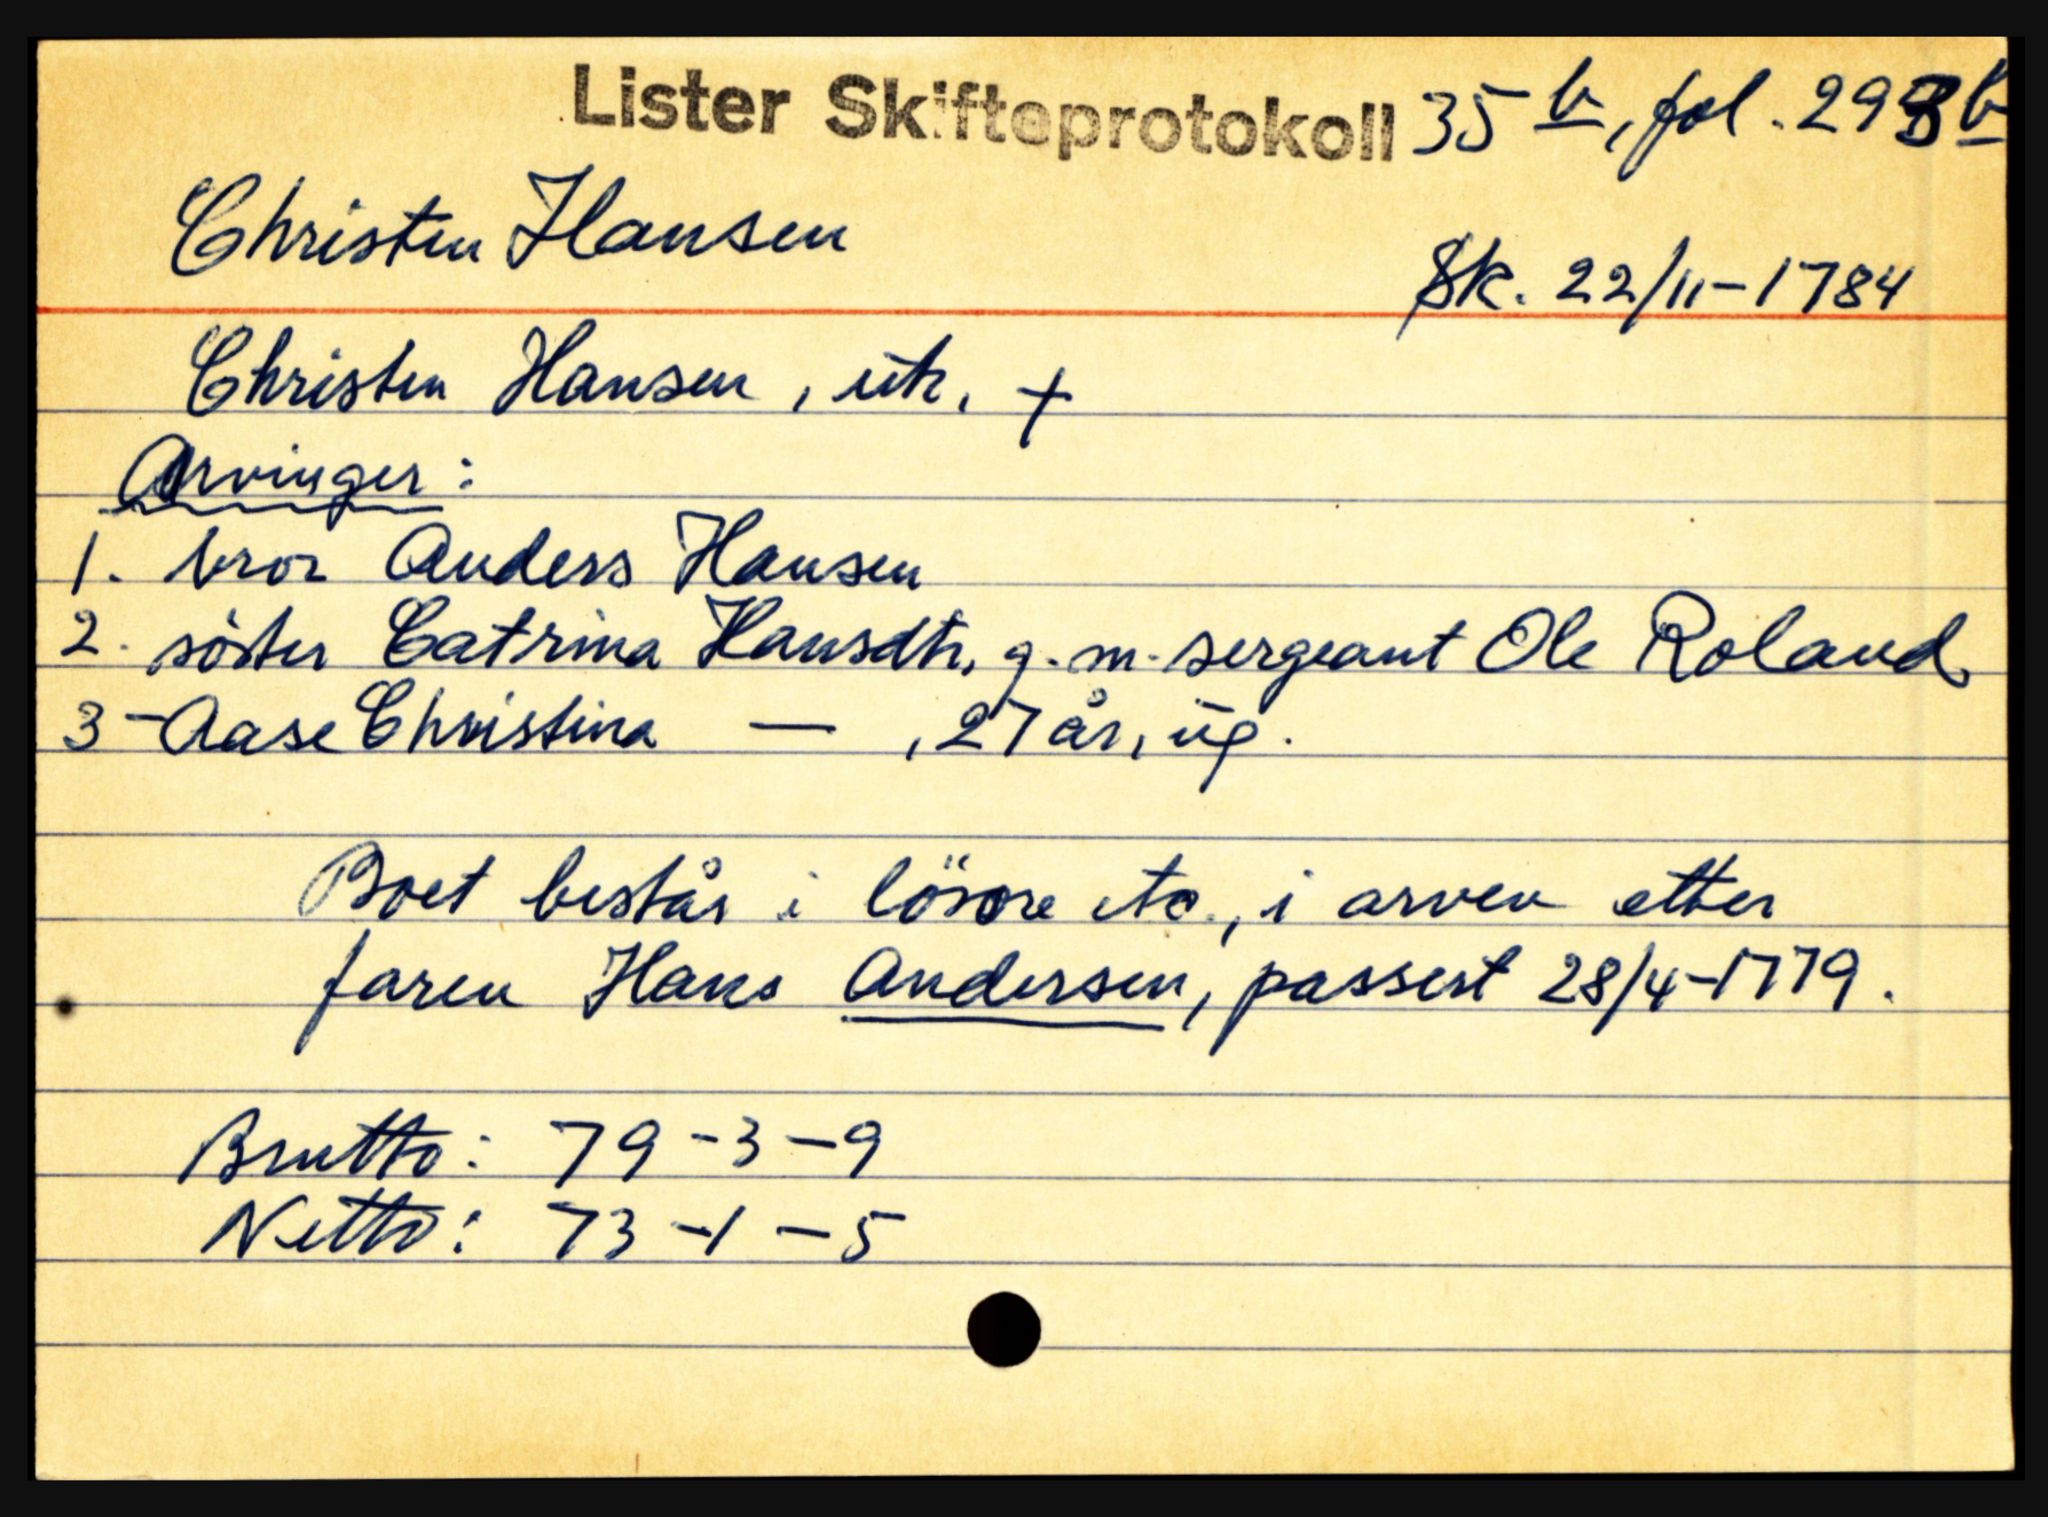 Lister Skifteprotokoll 35 b, fol. 298 b
Christen Hansen
Sk. 22/11-1784
Christen Hansen, utr. +
Arvinger:
1. bror Anders Hansen
2. söster Catrina Hansdtr. g. m. sergeant Ole Roland
3 - Aase Christina — , 27 år, ug.
Boet består i lösöre etc., i arven etter
faren Hans Andersen, passert 28/4-1779.
Brutto: 79-3-9
Netto: 73-1-5